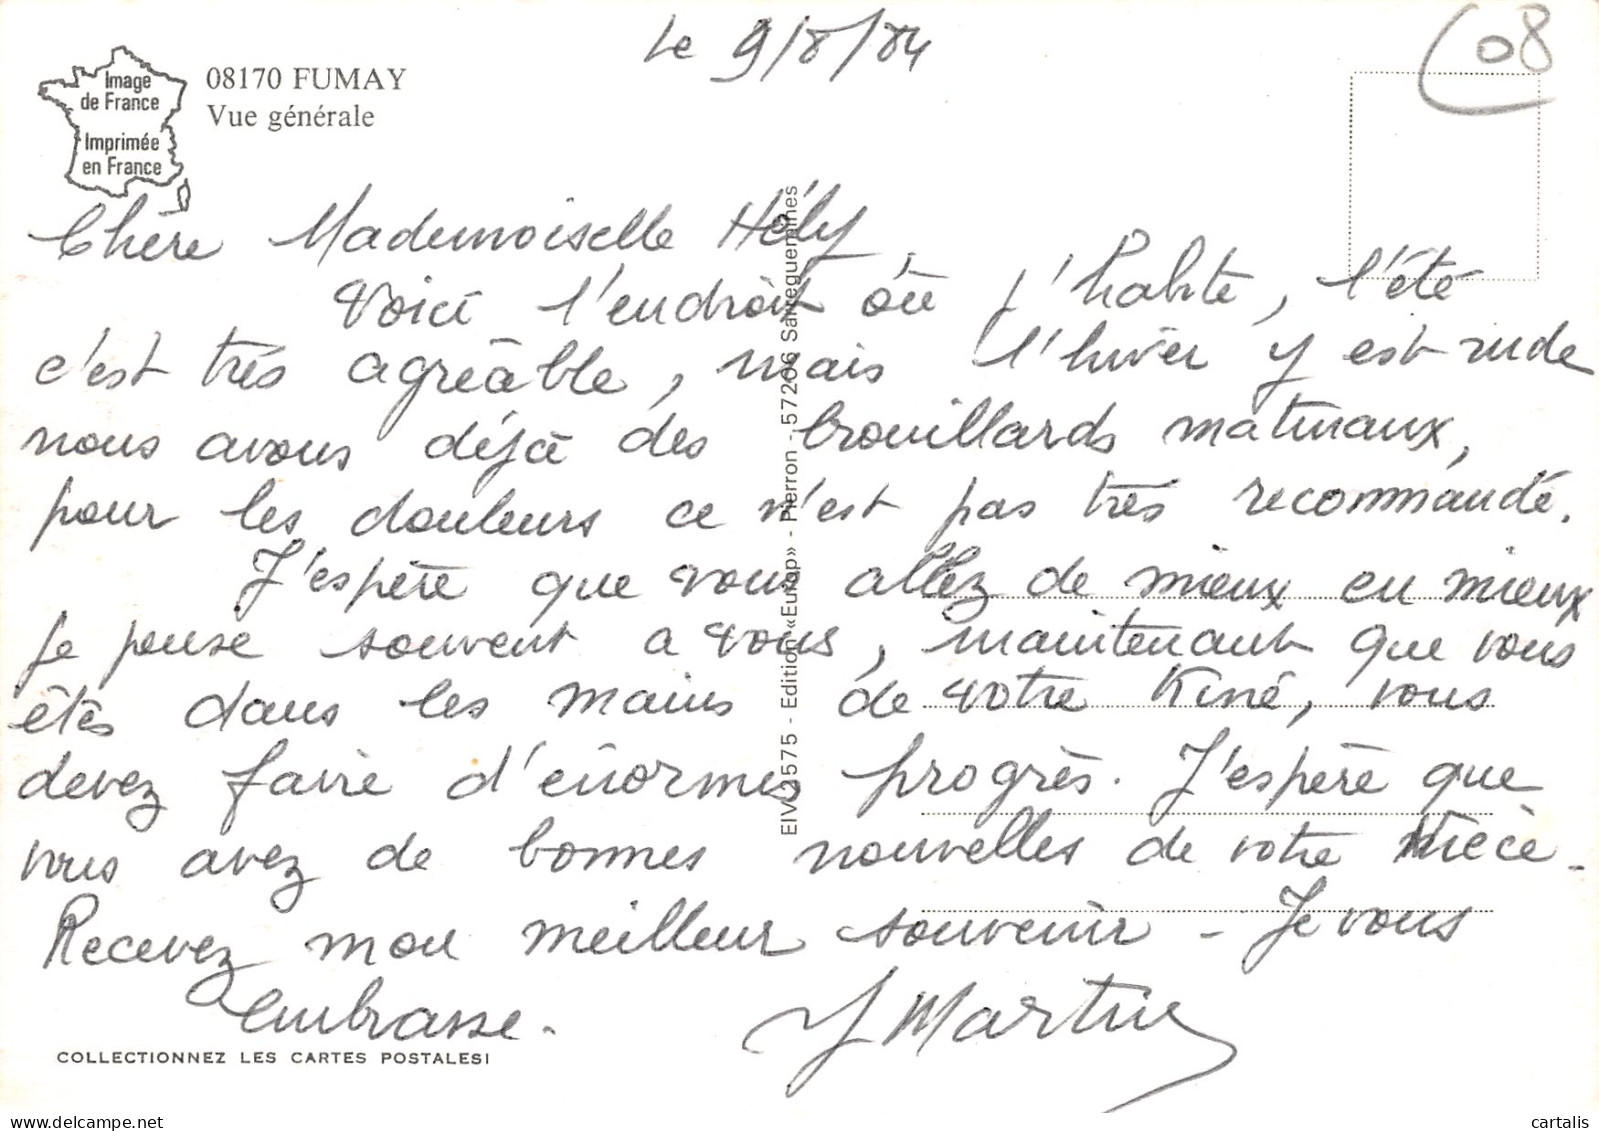 Le 9/8/84
08
Image
de France
Imprimée
en France
08170 FUMAY
Vue générale
Chère Mademoiselle Hély
Voici l'endroit où j'habite, l'été
c'est très agréable, mais l'hiver y est rude
nous avons déjà des brouillards matinaux,
pour les douleurs ce n'est pas très recommandé.
J'espère que vous allez de mieux en mieux
je pense souvent a vous, maintenant que vous
êtes dans les mains de votre Kiné, vous
devez faire d'énormes progrès. J'espère que
vous avez de bonnes nouvelles de votre nièce.
Recevez mon meilleur souvenir - Je vous
embrasse.
J Martin
EIV 2575 - Edition «Europ» - Pierron - 57206 Sarreguemines
COLLECTIONNEZ LES CARTES POSTALES!
cartalis